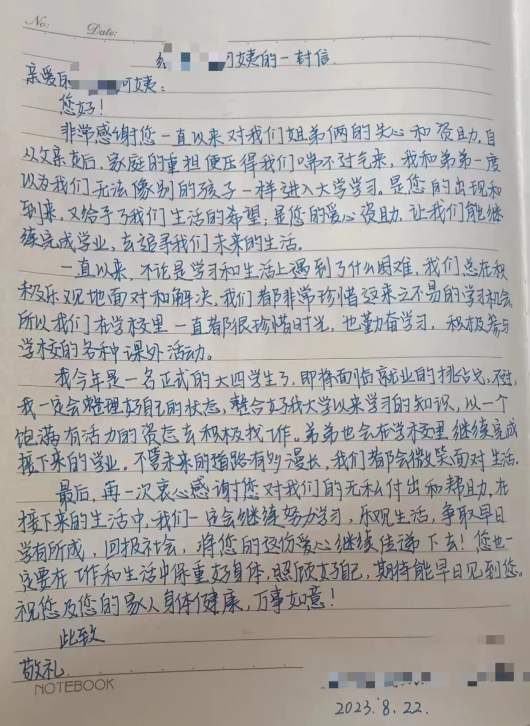 No:
Date:
阿姨的一封信
亲爱的阿姨：
您好！
非常感谢您一直以来对我们姐弟俩的关心和资助，自
从父亲走后，家庭的重担便压得我们喘不过气来，我和弟弟一度
以为我们无法像别的孩子一样进入大学学习。是您的出现和
到来，又给予了我们生活的希望，是您的爱心资助，让我们能继
续完成学业，去追寻我们未来的生活。
一直以来，不论是学习和生活上遇到了什么困难，我们总在积
极乐观地面对和解决，我们都非常珍惜这来之不易的学习机会，
所以我们在学校里一直都很珍惜时光，也勤奋学习，积极参与
学校的各种课外活动。
我今年是一名正式的大四学生了，即将面临就业的挑战，不过，
我一定会整理好自己的状态，整合好我大学以来学习的知识，以一个
饱满有活力的姿态去积极找工作。弟弟也会在学校里继续完成
接下来的学业。不管未来的道路有多漫长，我们都会微笑面对生活。
最后，再一次衷心感谢您对我们的无私付出和帮助，在
接下来的生活中，我们一定会继续努力学习，乐观生活，争取早日
学有所成，回报社会，将您的这份爱心继续传递下去！您也一
定要在工作和生活中保重好身体，照顾好自己，期待能早日见到您。
祝您及您的家人身体健康，万事如意！
此致
敬礼
NOTEBOOK
2023.8.22.